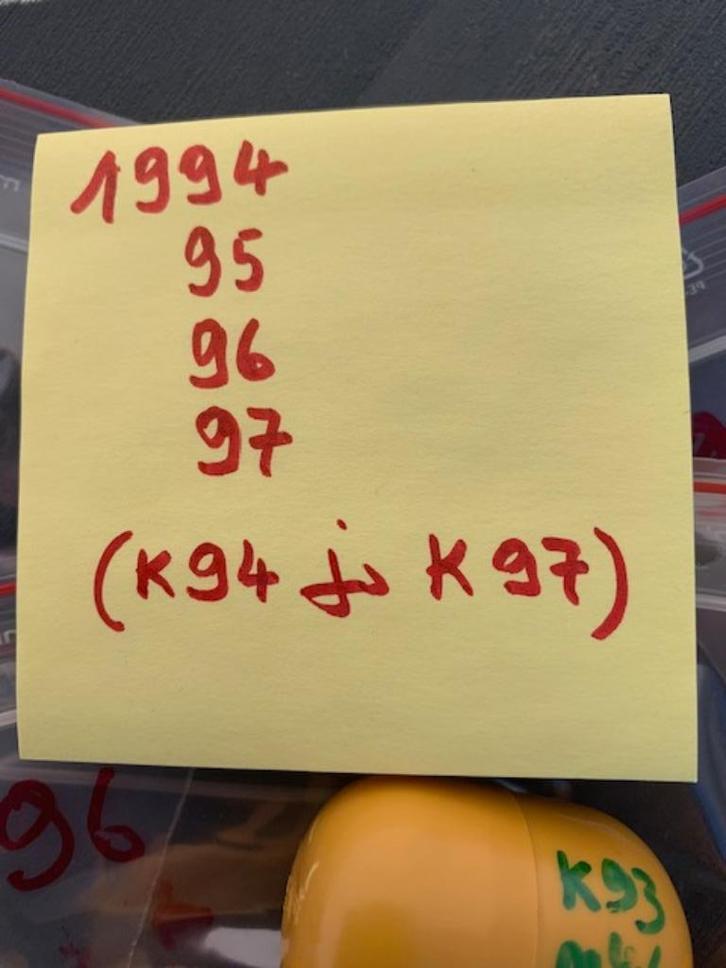 1994
95
96
97
(K94 ja K97)
96
K93